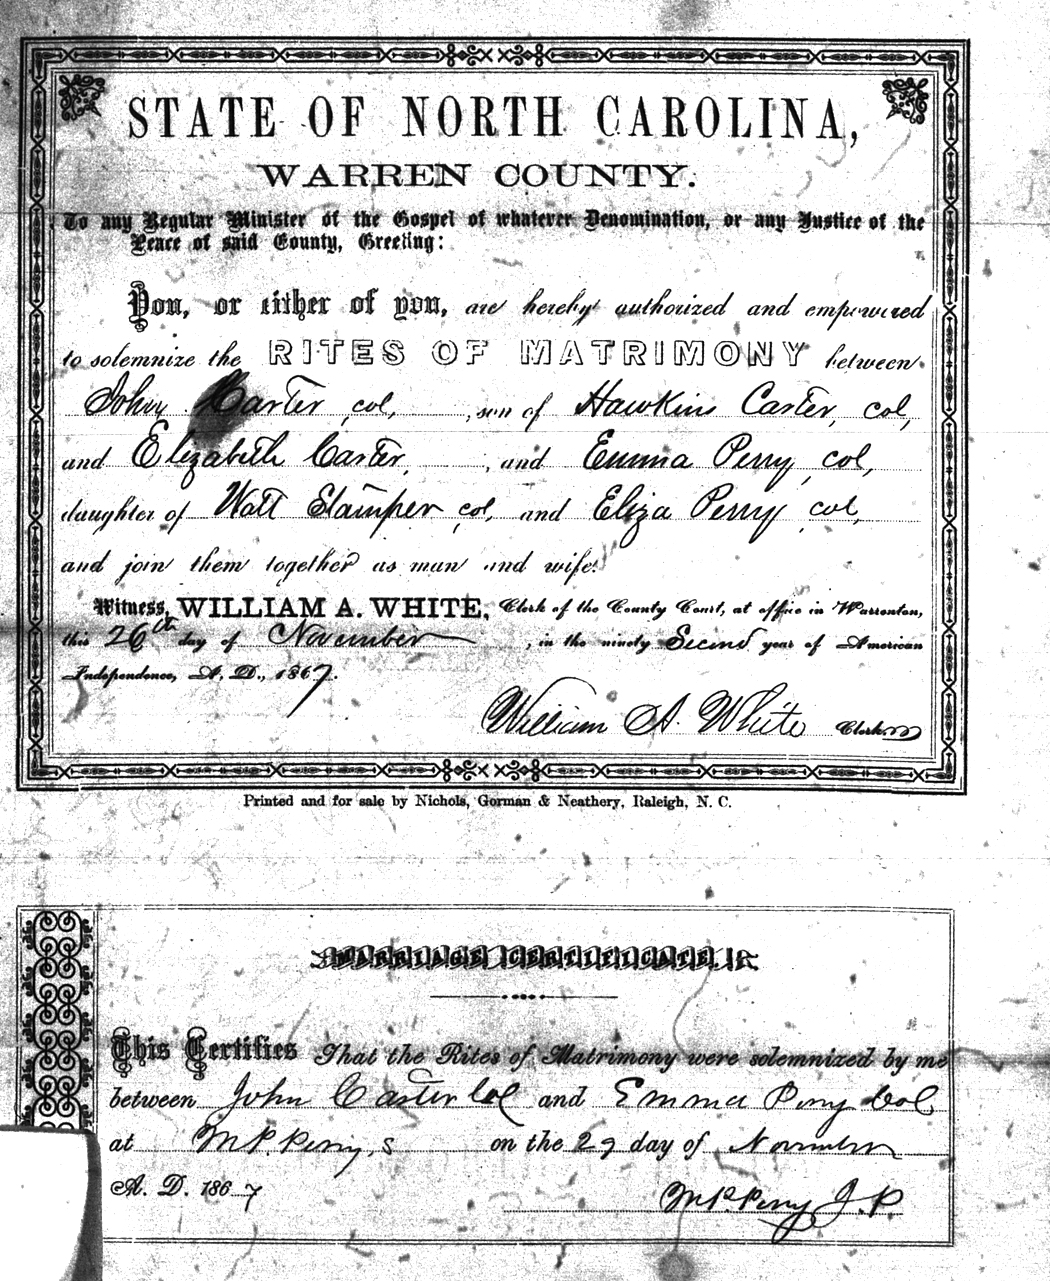 STATE OF NORTH CAROLINA,
WARREN COUNTY.
To any Regular Minister of the Gospel of whatever Denomination, or any Justice of the
Peace of said County, Greeting:
You, or either of you, are hereby authorized and empowered
to solemnize the RITES OF MATRIMONY between
John Carter, col, , son of Hawkins Carter, col,
and Elizabeth Carter, , and Emma Perry, col,
daughter of Watt Stamper col, and Eliza Perry, col,
and join them together as man and wife.
Witness, WILLIAM A. WHITE, Clerk of the County Court, at office in Warrenton,
this 26th day of November , in the ninety Second year of American
Independence, A. D., 1867.
William A. White Clerk
Printed and for sale by Nichols, Gorman & Neathery, Raleigh, N. C.
MARRIAGE CERTIFICATE.
This Certifies That the Rites of Matrimony were solemnized by me
between John Carter Col and Emma Perry Col
at M P. Perry,s on the 29 day of November
A. D. 1867
M P. Perry J. P.